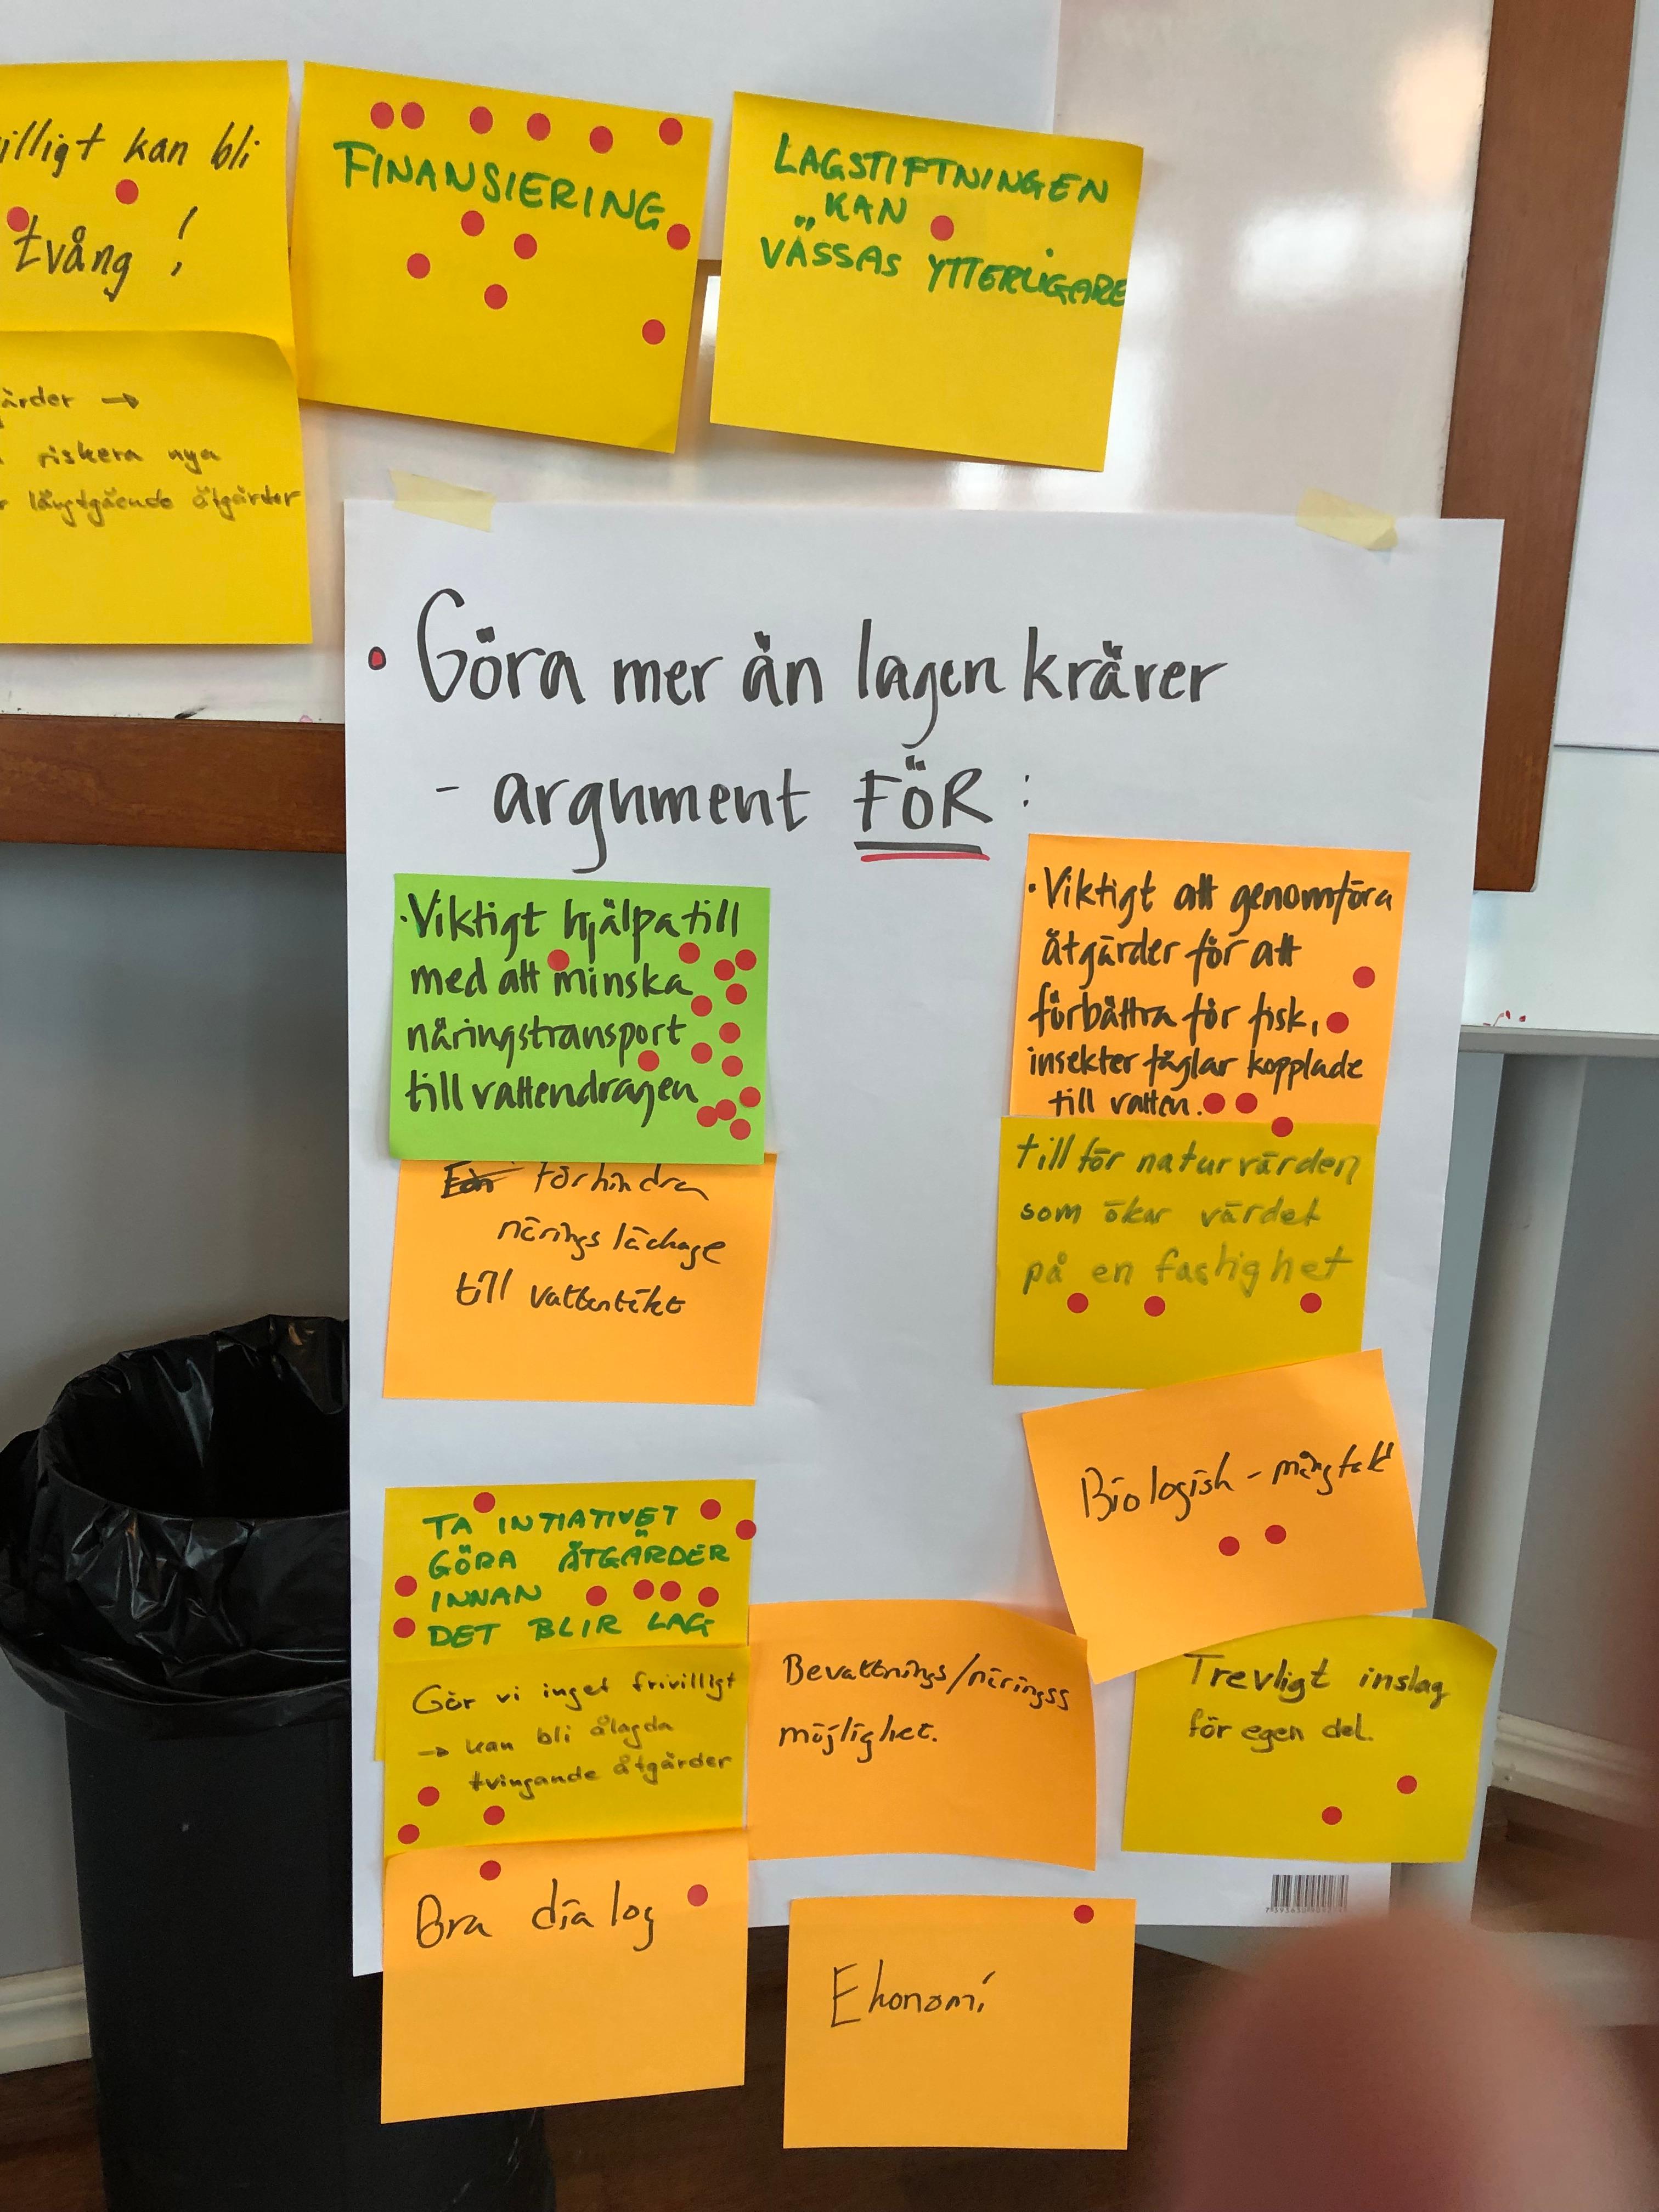 illigt kan bli
tvång !
ärder →
riskera nya
långtgående åtgärder
FINANSIERING
LAGSTIFTNINGEN
KAN
VÄSSAS YTTERLIGARE
• Göra mer än lagen kräver
- argument FÖR :
· Viktigt hjälpa till
med att minska
näringstransport
till vattendragen
förhindra
närings läckage
till vattentäkt
TA INTIATIVET
GÖRA ÅTGÄRDER
INNAN
DET BLIR LAG
Gör vi inget frivilligt
→ kan bli ålagda
tvingande åtgärder
Bra dialog
· Viktigt att genomföra
åtgärder för att
förbättra för fisk,
insekter fåglar kopplade
till vatten.
tillför naturvärden
som ökar värdet
på en fastighet
Biologish - mångfald
Bevattnings/närings
möjlighet.
Trevligt inslag
för egen del.
Ekonomi